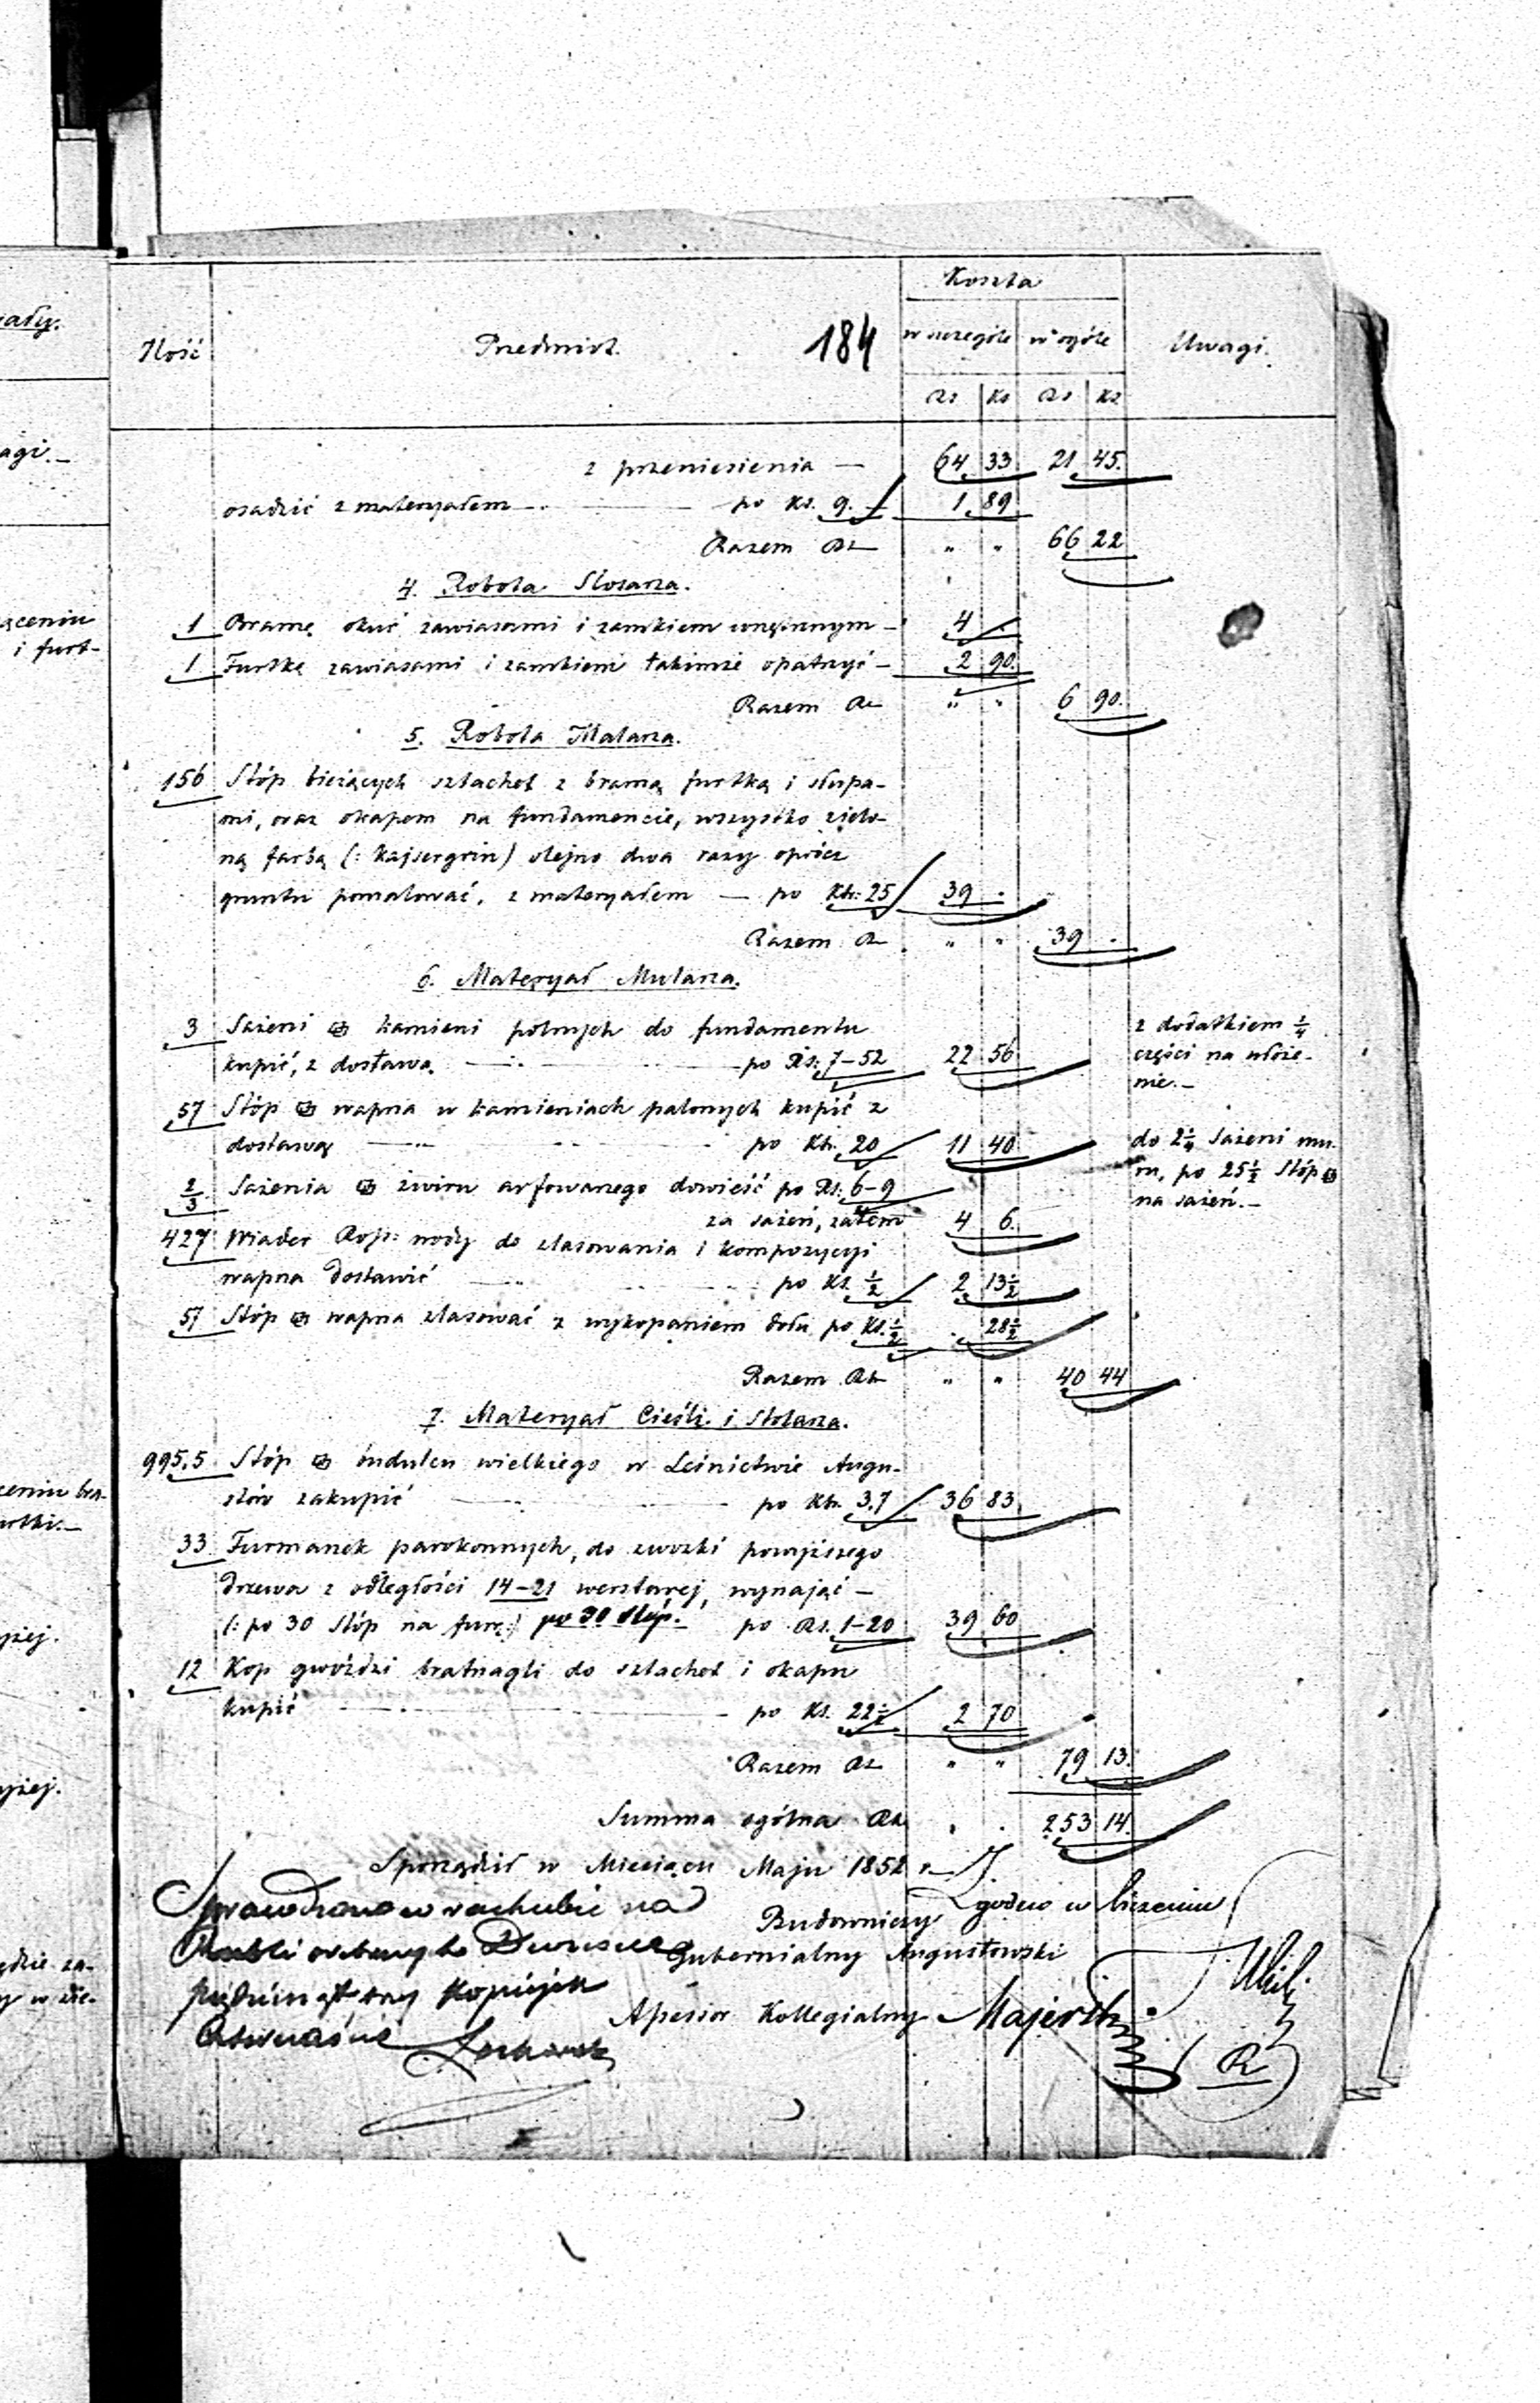 Koszta
Ilość Przedmiot. 184 w szczególe w ogóle Uwagi.
Rs Ks Rs Ks
z przeniesienia — 64 33 21 45.
osadzić z materyałem — po Ks. 9. — 1 89
Razem Rs „ „ 66 22
4. Robota Slosarza.
1 Bramę okuć zawiasami i zamkiem wnętrznym — 4 .
1 Furtkę zawiasami i zamkiem takimże opatrzyć — 2 90.
Razem Rs „ „ 6 90.
5. Robota Malarza.
156 Stóp bieżących sztachet z bramą furtką i słupa-
mi, oraz okapem na fundamencie, wszystko zielo-
ną farbą (: Kajsergrin) olejno dwa razy oprócz
gruntu pomalować, z materyałem — po Ks: 25 39 .
Razem Rs „ „ 39 .
6. Materyał Mularza.
3 Sażeni kamieni polnych do fundamentu z dodatkiem 1/4
kupić, z dostawą — po Rs: 7–52 22 56 części na ułoże-
nie.—
57 Stóp wapna w kamieniach palonych kupić z
dostawą — po Ks. 20 11 40 do 2 1/4 Sażeni mu-
ru, po 25 1/2 Stóp
2/3 Sażenia żwiru arfowanego dowieść po Rs. 6–9 na sażeń.—
za sażeń, zatem 4 6.
427 Wiader Rosp: wody do zlasowania i kompozycyi
wapna dostawić — po Ks 1/2 2 13 1/2
57 Stóp wapna zlasować z wykopaniem dołu po Ks. 1/2 . 28 1/2
Razem Rs „ „ 40 44
7. Materyał Cieśli i Stolarza.
995.5 Stóp budulcu wielkiego w Leśnictwie Augu-
stów zakupić — po Ks. 3.7 36 83
33 Furmanek parokonnych, do zwózki powyższego
drzewa z odległości 14–21 werstowej, wynająć —
(: po 30 Stóp na furę:) po 30 stóp. po Rs. 1–20 39 60
12 Kop gwóździ bratnagli do sztachet i okapu
kupić — po Ks. 22 1/2 2 70
Razem Rs „ „ 79 13.
Summa ogólna Rs . . 253 14.
Sporządził w Miesiącu Maju 1852 r.
Sprawdzono w rachubie na Zgodno w liczeniu
Budowniczy
Rubli srebrnych Dwieście Gubernialny Augustowski
pięćdziesiąt trzy Kopiejek
Czternaście Assesor Kollegialny